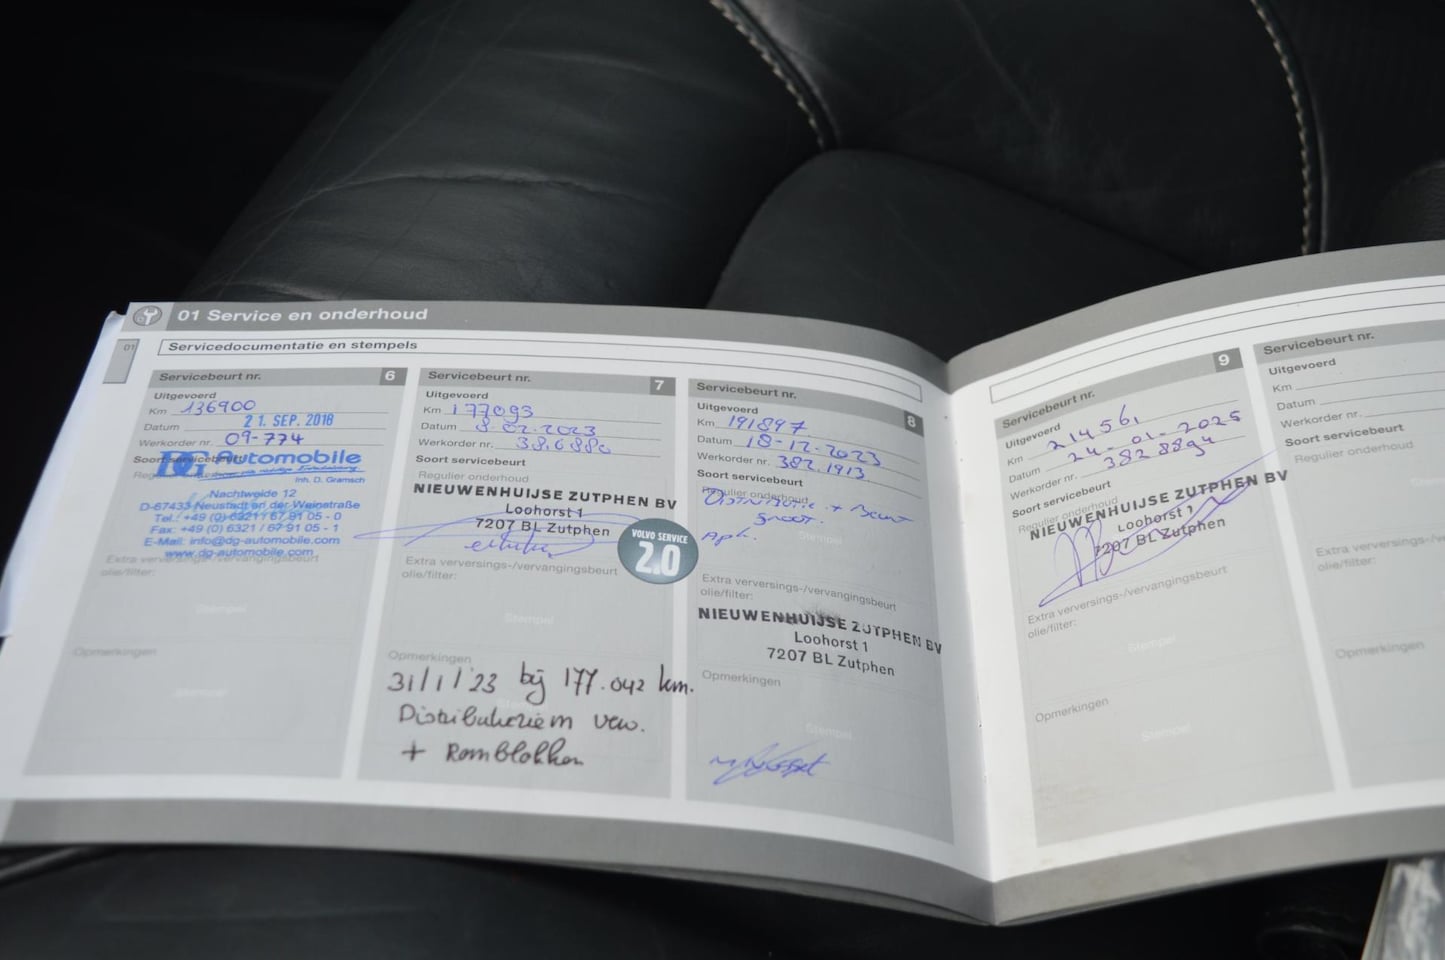 01 Service en onderhoud
01
Servicedocumentatie en stempels
Servicebeurt nr. 6
Uitgevoerd
Km 136900
Datum 21. SEP. 2018
Werkorder nr. 09-774
Soort servicebeurt
DG Automobile
Inh. D. Gramsch
Nachtweide 12
D-67433 Neustadt an der Weinstraße
Tel.: +49 (0) 6321 / 67 91 05 - 0
Fax: +49 (0) 6321 / 67 91 05 - 1
E-Mail: info@dg-automobile.com
www.dg-automobile.com
Extra verversings-/vervangingsbeurt
olie/filter:
Stempel
Opmerkingen
Stempel
Servicebeurt nr. 7
Uitgevoerd
Km 177093
Datum 8-02-2023
Werkorder nr. 386880
Soort servicebeurt
Regulier onderhoud
NIEUWENHUIJSE ZUTPHEN BV
Loohorst 1
7207 BL Zutphen
VOLVO SERVICE
2.0
Extra verversings-/vervangingsbeurt
olie/filter:
Stempel
Opmerkingen
31/1/'23 bij 177.042 km.
Distributieriem verv.
+ Remblokken
Servicebeurt nr. 8
Uitgevoerd
Km 191897
Datum 18-12-2023
Werkorder nr. 3821913
Soort servicebeurt
Regulier onderhoud
Distributie + Beurt
groot.
Apk.
Stempel
Extra verversings-/vervangingsbeurt
olie/filter:
NIEUWENHUIJSE ZUTPHEN BV
Loohorst 1
7207 BL Zutphen
Opmerkingen
Stempel
Servicebeurt nr. 9
Uitgevoerd
Km 214561
Datum 24-01-2025
Werkorder nr. 3828894
Soort servicebeurt
Regulier onderhoud
NIEUWENHUIJSE ZUTPHEN BV
Loohorst 1
7207 BL Zutphen
Extra verversings-/vervangingsbeurt
olie/filter:
Stempel
Opmerkingen
Stempel
Servicebeurt nr.
Uitgevoerd
Km
Datum
Werkorder nr.
Soort servicebeurt
Regulier onderhoud
Extra verversings-/vervangingsbeurt
olie/filter:
Opmerkingen